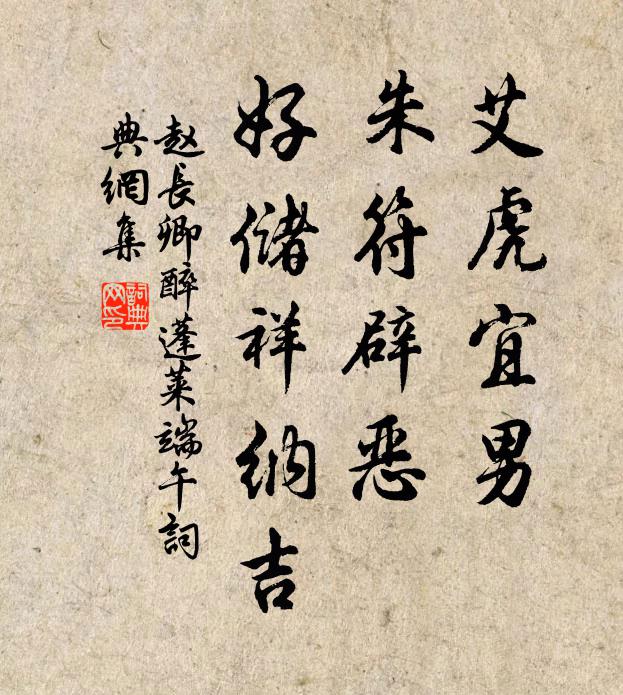 艾虎宜男
朱符辟恶
好储祥纳吉
赵長卿醉蓬莱端午詞
典網集
詞典
网印